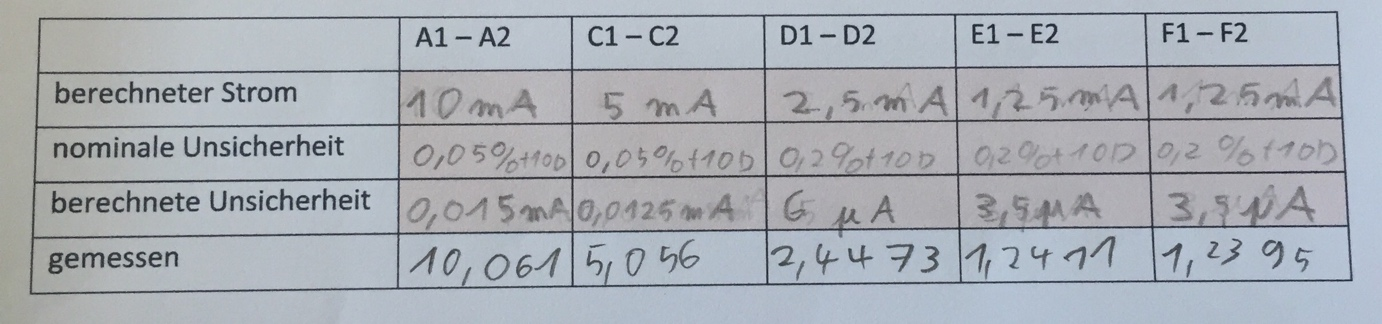 A1 – A2 C1 – C2 D1 – D2 E1 – E2 F1 – F2
berechneter Strom 10 mA 5 mA 2,5 mA 1,25 mA 1,25 mA
nominale Unsicherheit 0,05%+10D 0,05%+10D 0,2%+10D 0,2%+10D 0,2%+10D
berechnete Unsicherheit 0,015mA 0,0125mA 6 µA 3,5µA 3,5µA
gemessen 10,061 5,056 2,4473 1,2411 1,2395